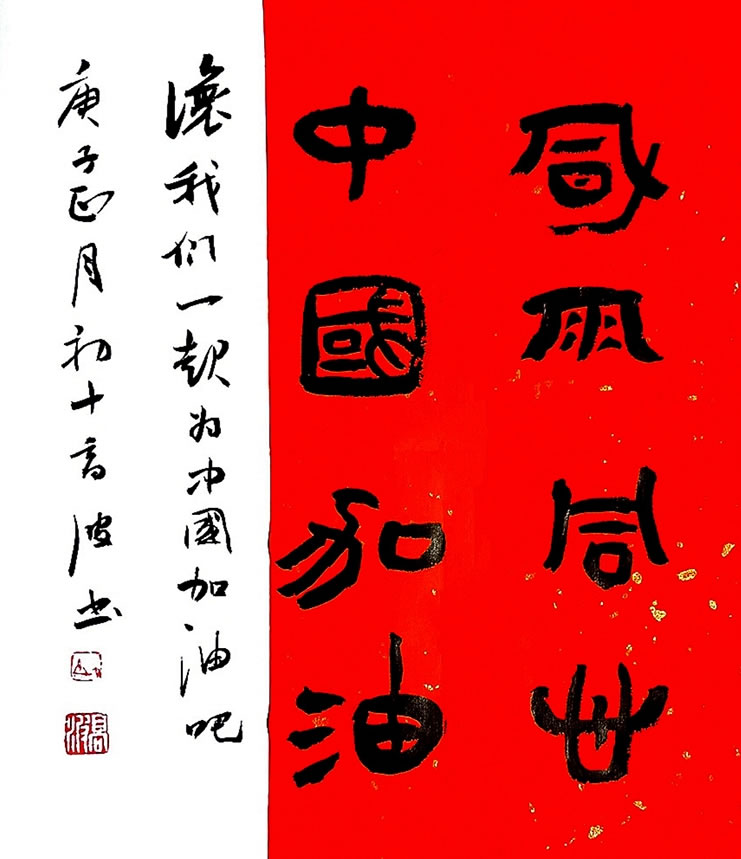 風雨同舟
中國加油
讓我们一起为中國加油吧
庚子正月初十高波书